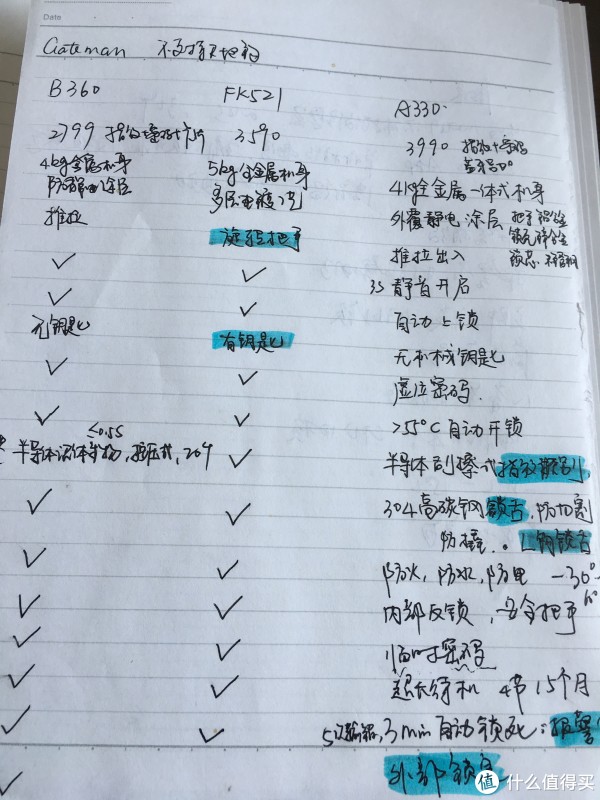 Date
Gateman 不支持天地钩
B360 FK521 A330
2799 指纹密码卡片 3590 3990 指纹+密码
4kg金属机身 5kg全金属机身 4kg全金属一体式机身
防静电涂层 多层电镀 外覆静电涂层 把手铝合金
推拉 旋转把手 推拉出入 锁壳锌合金
✓ ✓ 3S静音开启
✓ ✓ 自动上锁
无钥匙 有钥匙 无机械钥匙
✓ ✓ 虚位密码
✓ ✓ >55°C自动开锁
≤0.5S
半导体 ✓ 半导体刮擦式指纹识别
✓ ✓ 304高碳钢锁舌,防切割
防撞。L钢锁舌
✓ ✓ 防火,防水,防电 -30°
✓ ✓ 内部反锁,安全把手
✓ ✓ 临时密码
✓ ✓ 超长待机 4节15个月
✓ ✓ 5次输错,3min自动锁死:报警
✓ 外部锁
值 什么值得买